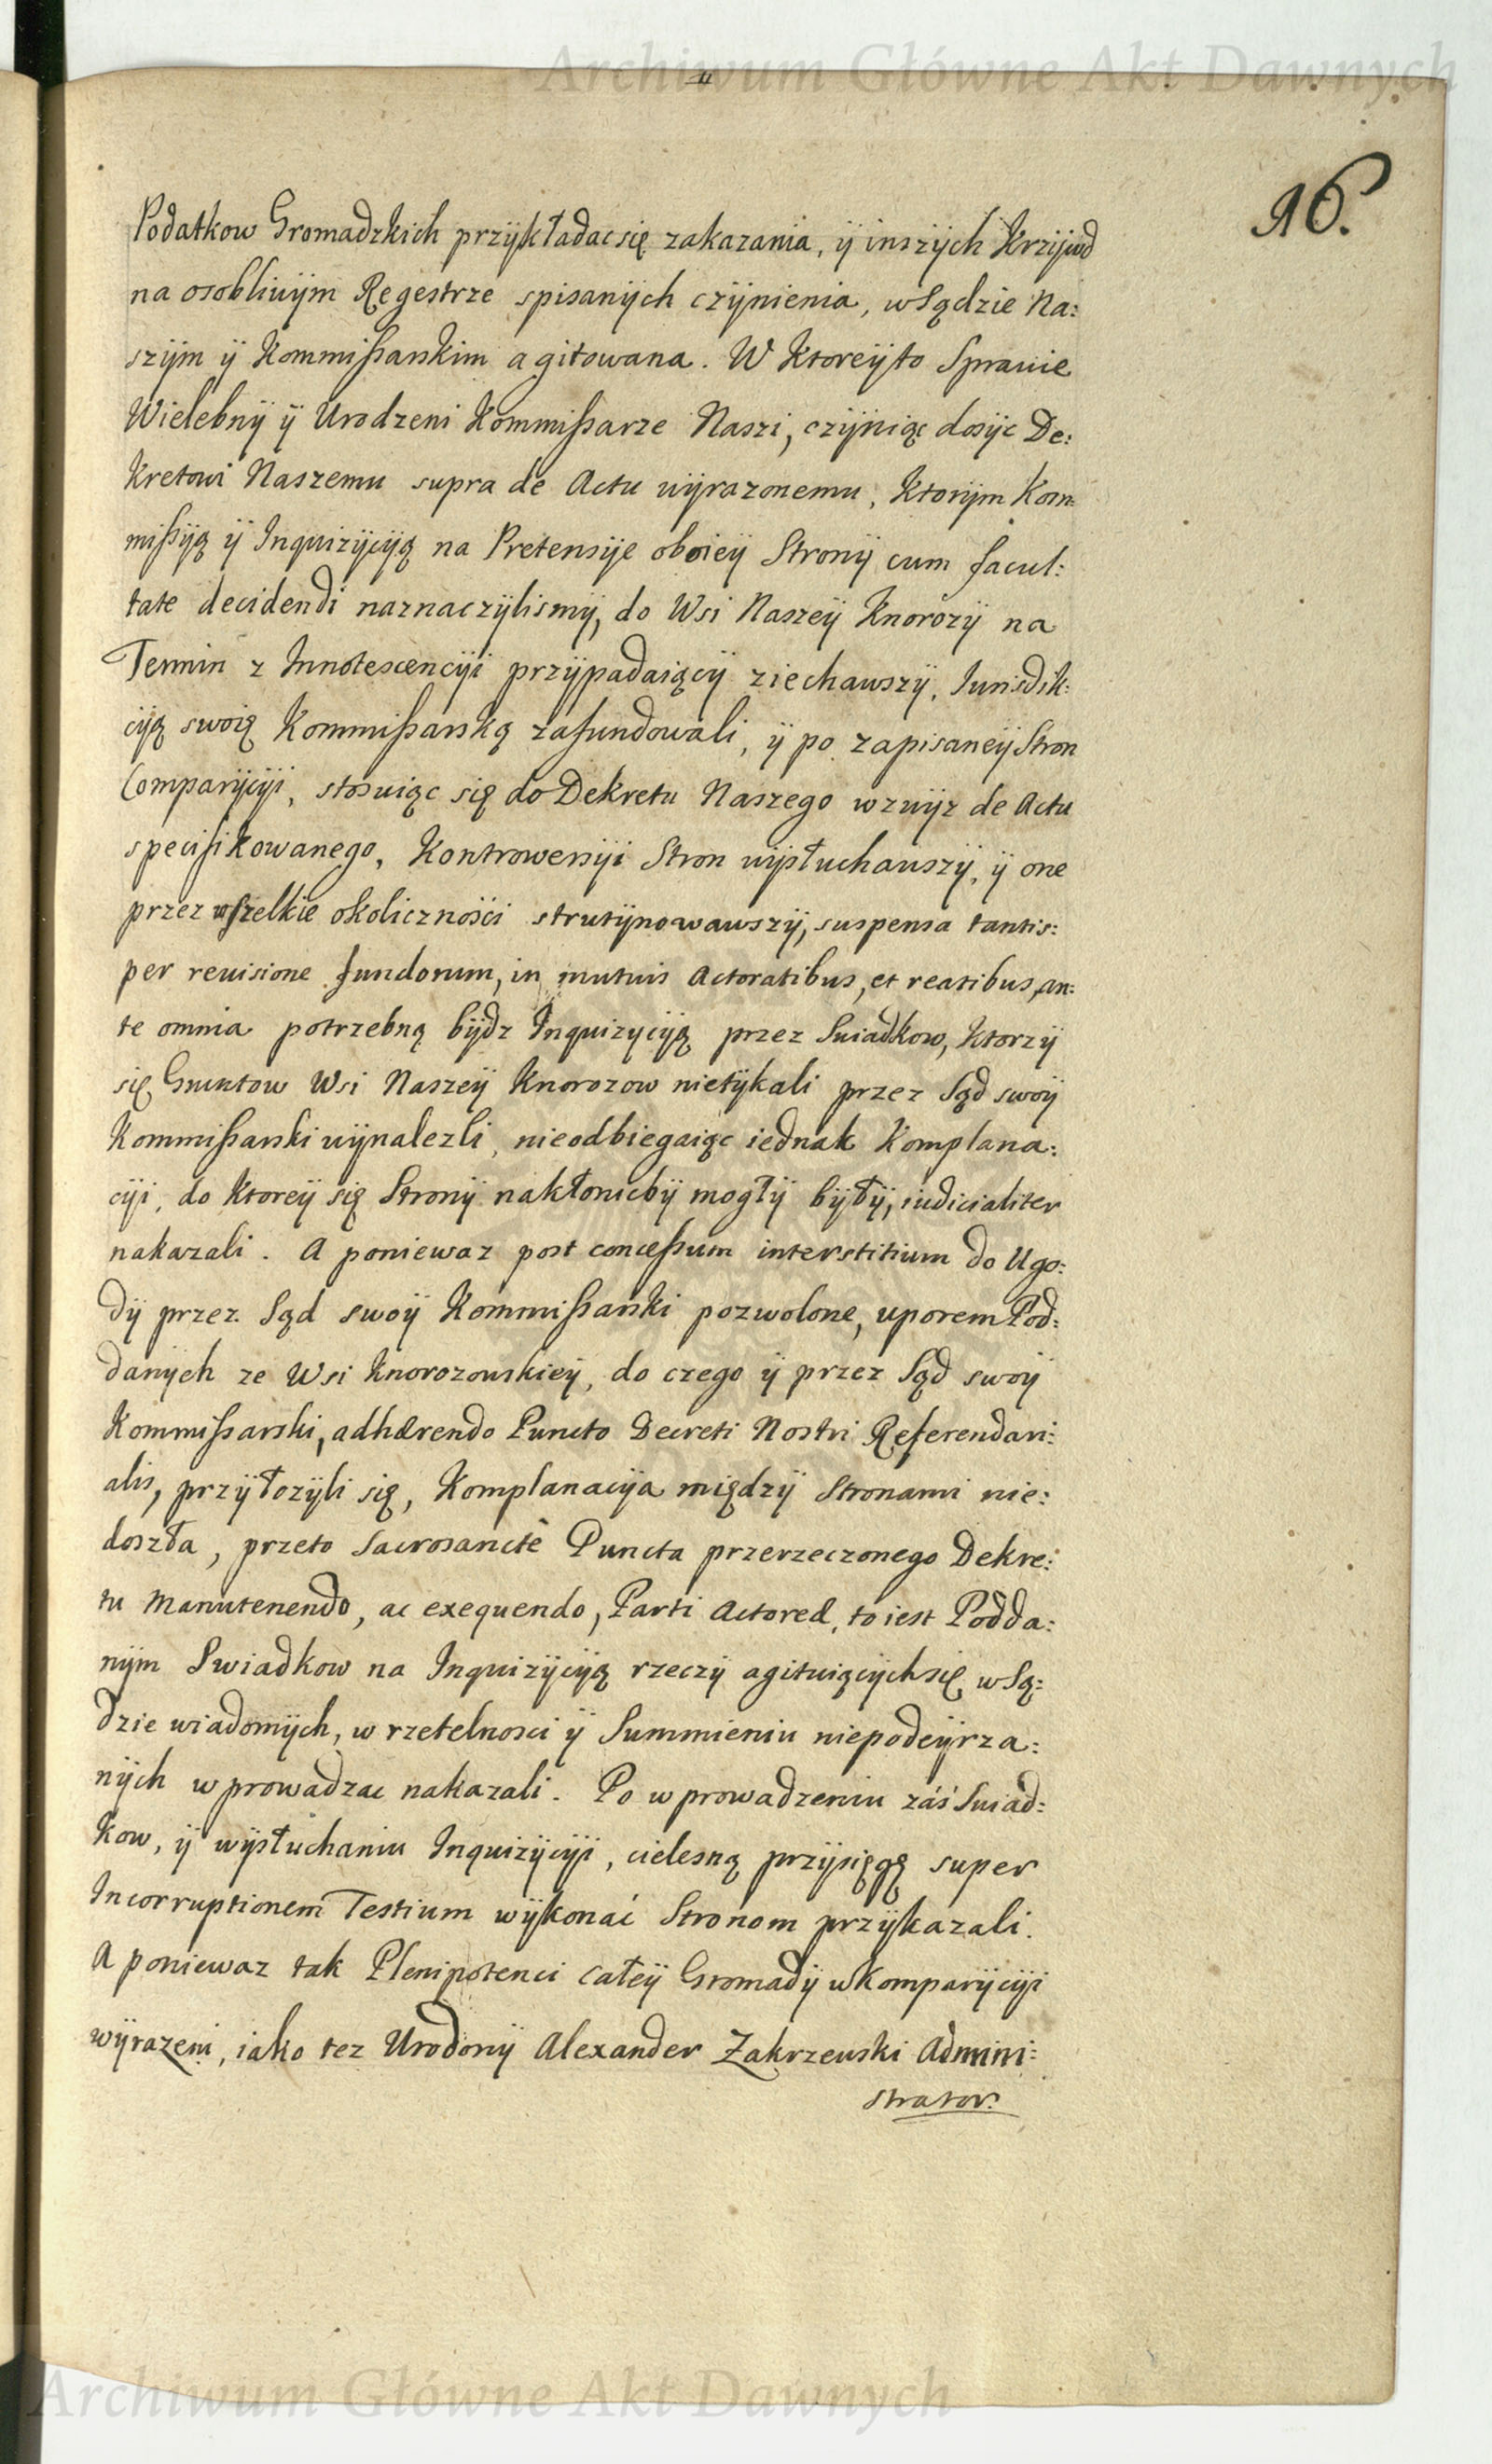 Archiwum Główne Akt Dawnych
16.
Podatkow Gromadzkich przykładac się zakazania, ÿ inszÿch Krzÿwd
na osobliwÿm Regestrze spisanÿch czÿnienia, w Sądzie Na:
szÿm ÿ Kommißarskim agitowana. W Ktoreÿ to Sprawie
Wielebnÿ ÿ Urodzeni Kommißarze Naszi, czÿniąc dosÿc De:
kretowi Naszemu supra de Actu wÿrazonemu, Ktorÿm Kom:
mißÿą ÿ Inquizÿcÿą na Pretensÿe oboieÿ Stronÿ cum facul:
tate decidendi naznaczÿlismÿ, do Wsi Naszeÿ Knorozÿ na
Termin z Innotescencÿi przÿpadaiącÿ ziechawszÿ, Iurisdik:
cÿą swoią Kommißarską zafundowali, ÿ po zapisaneÿ Stron
Comparÿcÿi, stosuiąc się do Dekretu Naszego wzwÿz de Actu
specifikowanego, Kontrowersÿi Stron wÿsłuchawszÿ, ÿ one
przez wszelkie okoliczności strutÿnowawszÿ, suspensa tantis:
per reuisione fundorum, in mutuis Actoratibus, et reatibus, an:
te omnia potrzebną bÿdz Inquizycÿą przez Swiadkow, Ktorzÿ
się Gruntow Wsi Naszeÿ Knorozow nietÿkali przez Sąd swoÿ
Kommißarski wÿnalezli, nieodbiegaiąc iednak Komplana:
cÿi, do Ktoreÿ się Stronÿ nakłonicbÿ mogłÿ bÿłÿ, iudicialiter
nakazali. A poniewaz post conceßum interstitium do Ugo:
dÿ przez Sąd swoÿ Kommißarski pozwolone, uporem Pod:
danÿch ze Wsi Knorozowskieÿ, do czego ÿ przez Sąd swoÿ
Kommißarski, adhærendo Puncto Decreti Nostri Referendari:
alis, przÿłozÿli się, Komplanacÿa międzÿ Stronami nie:
doszła, przeto Sacrosanctè Puncta przerzeczonego Dekre:
tu Manutenendo, ac exequendo, Parti Actoreæ, to iest Podda:
nÿm Swiadkow na Inquizÿcÿą rzeczÿ agituiącÿch się w Są:
dzie wiadomÿch, w rzetelnosci ÿ Summieniu niepodeÿrza:
nÿch wprowadzac nakazali. Po wprowadzeniu zaś Swiad:
kow, ÿ wÿsłuchaniu Inquizÿcÿi, cielesną przÿsięgę super
Incorruptionem Testium wÿkonać Stronom przÿkazali.
A poniewaz tak Plenipotenci całeÿ Gromadÿ w Komparÿcÿi
wÿrazeni, iako tez Urodonÿ Alexander Zakrzewski Admini:
strator.
Archiwum Główne Akt Dawnych